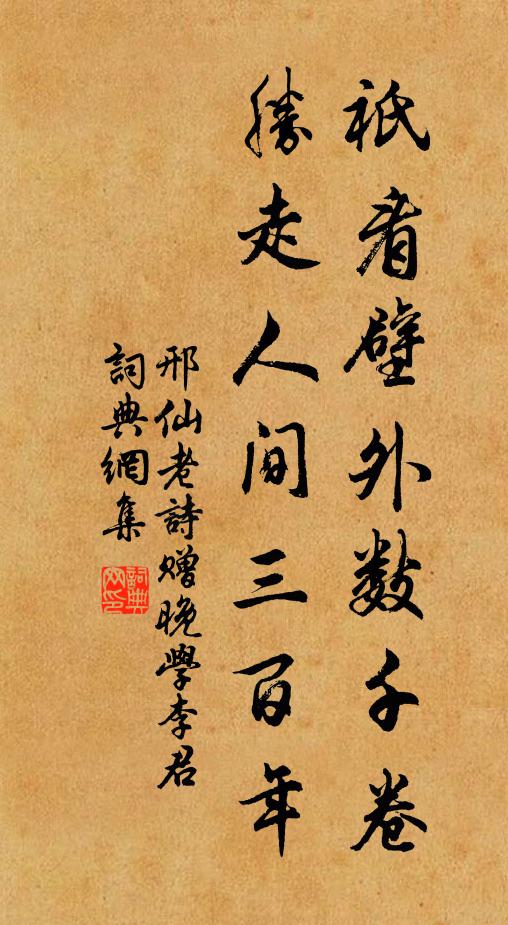 祇看壁外数千卷
勝走人间三百年
邢仙老詩赠晚學李君
詞典網集
詞典
网印